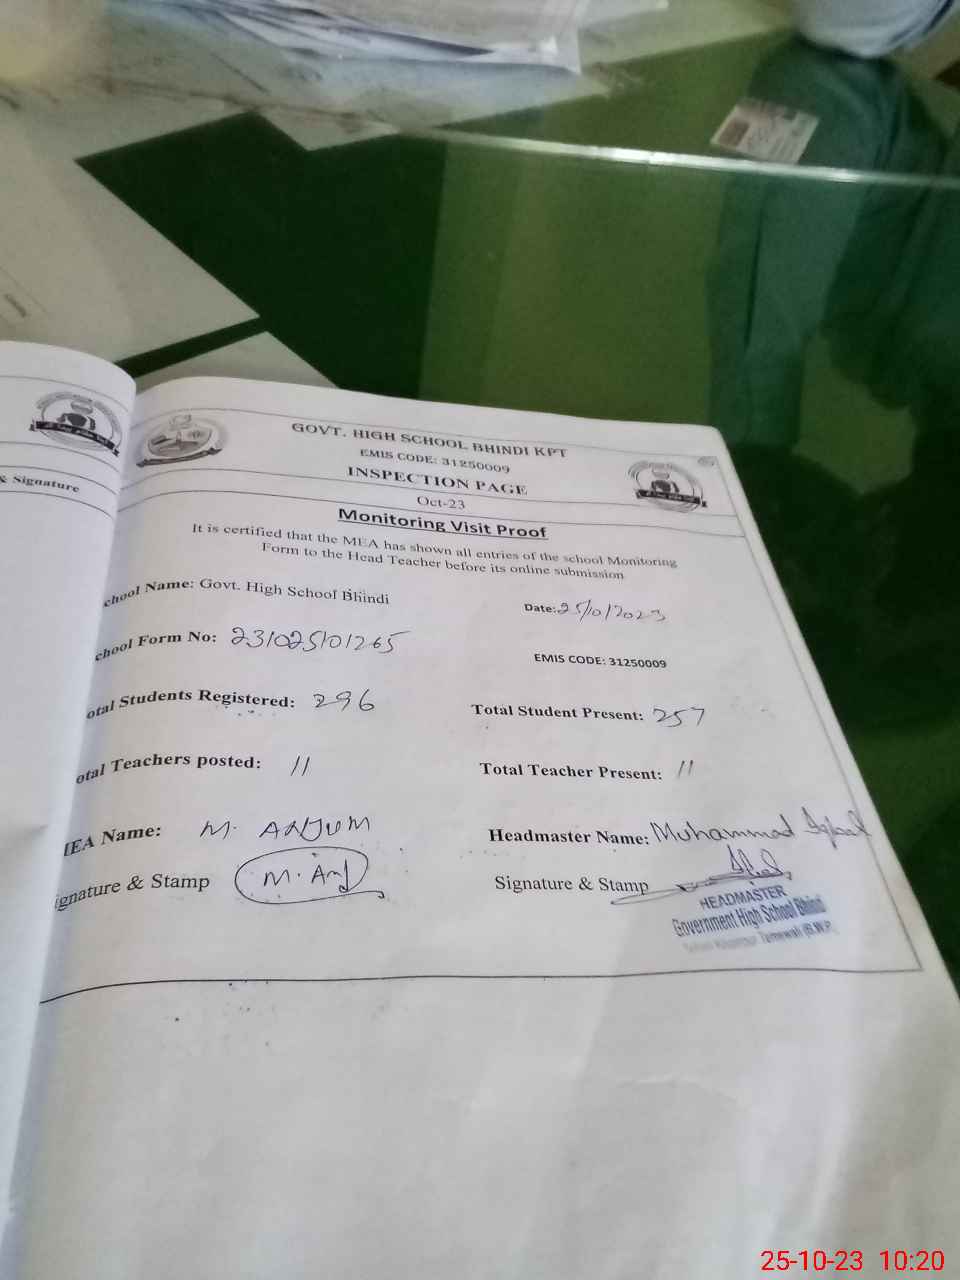 & Signature
GOVT. HIGH SCHOOL BHINDI KPT
EMIS CODE: 31250009
INSPECTION PAGE
Oct-23
Monitoring Visit Proof
It is certified that the MEA has shown all entries of the school Monitoring
Form to the Head Teacher before its online submission
chool Name: Govt. High School Bhindi
Date: 25/10/2023
chool Form No: 231025101265
EMIS CODE: 31250009
otal Students Registered: 296
Total Student Present: 257
otal Teachers posted: 11
Total Teacher Present: 11
MEA Name: M. ANJUM
Headmaster Name: Muhammad Iqbal
ignature & Stamp M. Anj
Signature & Stamp
HEADMASTER
Government High School Bhindi
Tamewali (B.W.P)
25-10-23 10:20